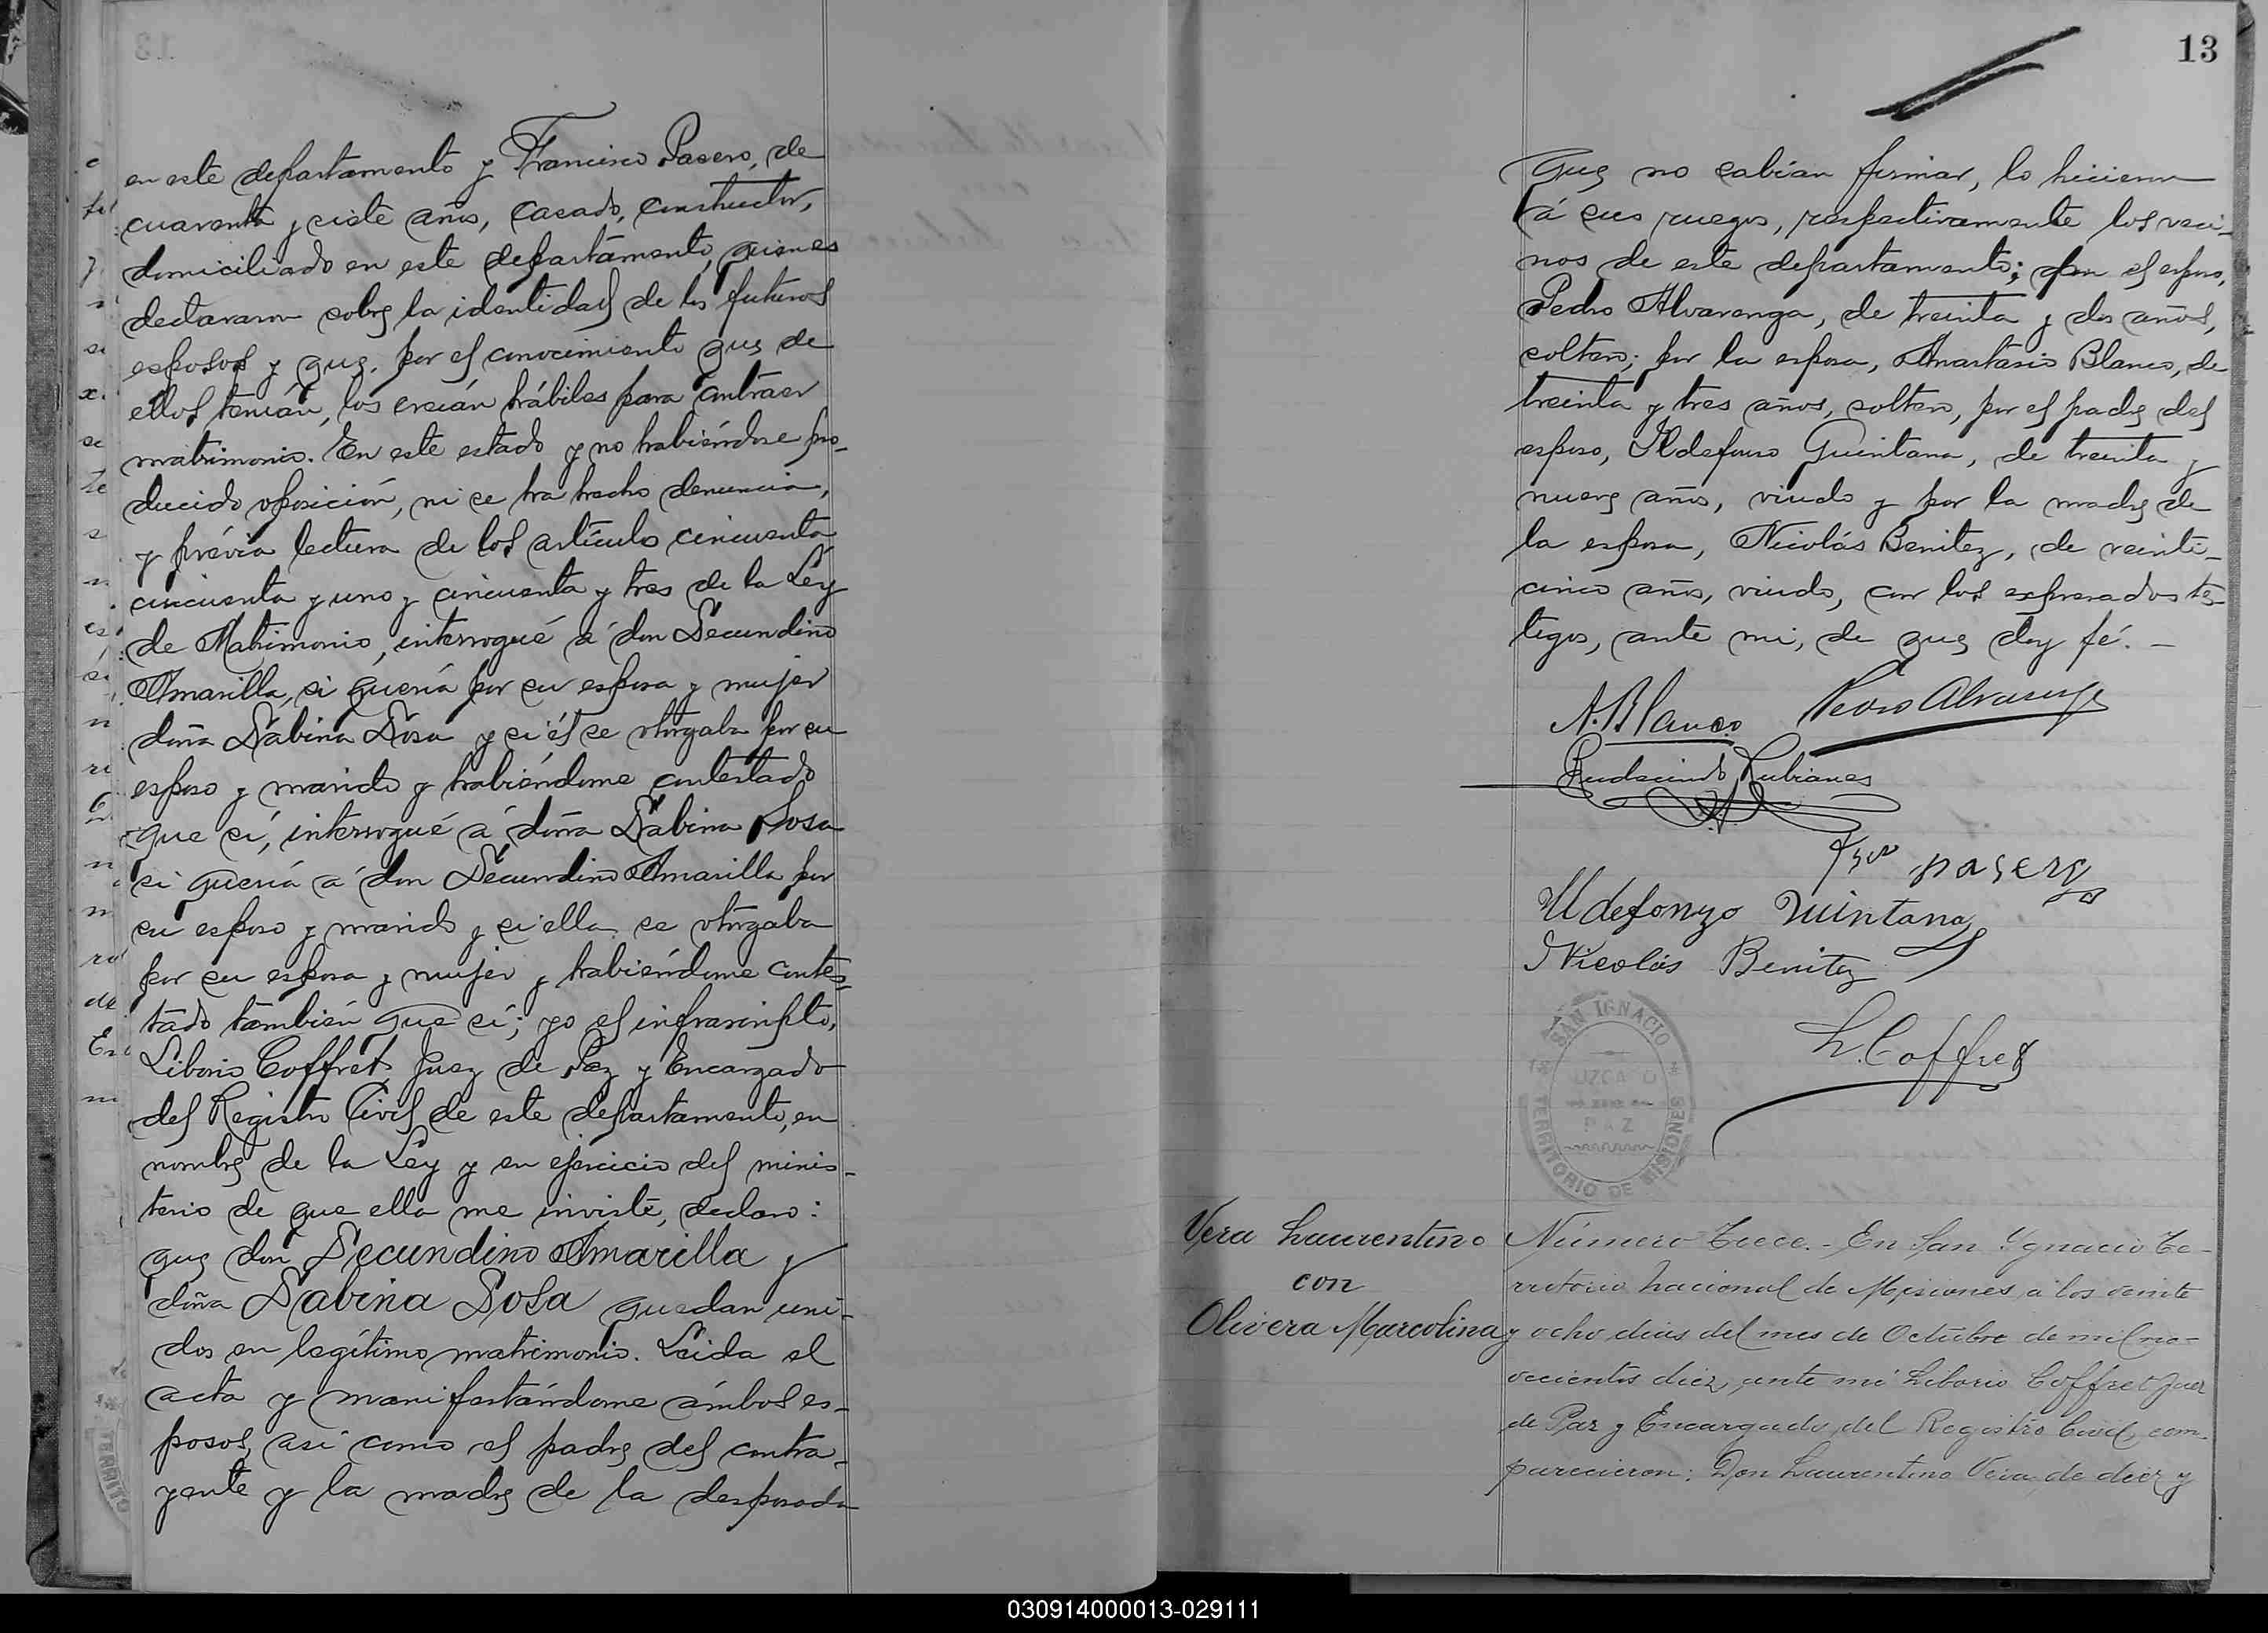 en este departamento y Francisco Pasero, de
cuarenta y siete años, casado, constructor,
domiciliado en este departamento, quienes
declararon sobre la identidad de los futuros
esposos y que, por el conocimiento que de
ellos tenían, los creían hábiles para contraer
matrimonio. En este estado y no habiéndose pro-
ducido oposición, ni se ha hecho denuncia,
y prévia lectura de los artículos cincuenta
cincuenta y uno y cincuenta y tres de la Ley
de Matrimonio, interrogué á don Secundino
Amarilla, si quería por su esposa y mujer
doña Sabina Sosa y si él se otorgaba por su
esposo y marido y habiéndome contestado
que sí, interrogué á doña Sabina Sosa
si quería á don Secundino Amarilla por
su esposo y marido y si ella se otorgaba
por su esposa y mujer y habiéndome contes-
tado también que sí; yo el infrascripto,
Liborio Coffret, Juez de Paz y Encargado
del Registro Civil de este departamento, en
nombre de la Ley y en ejercicio del minis-
terio de que ella me inviste, declaro:
que don Secundino Amarilla y
doña Sabina Sosa quedan uni-
dos en legítimo matrimonio. Leida el
acta y manifestándome ámbos es-
posos, así como el padre del contra-
yente y la madre de la desposada
TERRITO
13
que no sabían firmar, lo hicieron
á sus ruegos, respectivamente los veci-
nos de este departamento; por el esposo,
Pedro Alvarenga, de treinta y dos años,
soltero; por la esposa, Anastasio Blanco, de
treinta y tres años, soltero, por el padre del
esposo, Ildefonso Quintana, de treinta y
nueve años, viudo y por la madre de
la esposa, Nicolás Benitez, de veinti-
cinco años, viudo, con los expresados tes-
tigos, ante mi, de que doy fé. -
A. Blanco Pedro Alvarenga
Rudecindo Lubianes
Fco pasero
Ildefonzo Quintana
Nicolás Benitez
L. Coffret
SAN IGNACIO
JUZGADO
DE
PAZ
TERRITORIO DE MISIONES
Vera Laurentino
con
Olivera Marcolina
Número Trece. - En San Ygnacio Te-
rritorio Nacional de Misiones, á los veinte
y ocho dias del mes de Octubre de mil no-
vecientos diez, ante mi Liborio Coffret Juez
de Paz y Encargado del Registro Civil, com-
parecieron: Don Laurentino Vera, de diez y
030914000013-029111